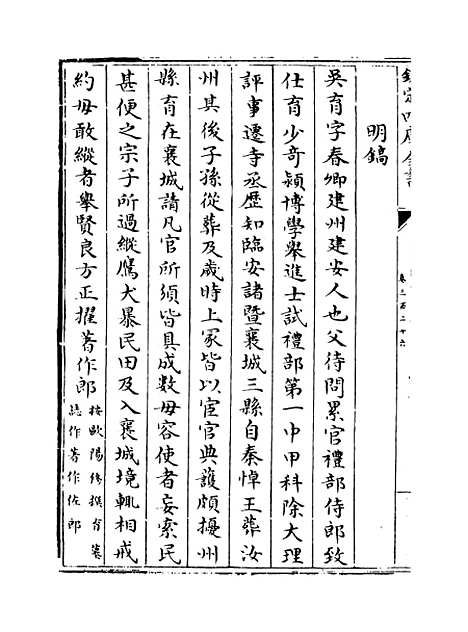 欽定四庫全書
卷三百二十六
明鎬
吳育字春卿建州建安人也父待問累官禮部侍郎致
仕育少奇穎博學舉進士試禮部第一中甲科除大理
評事遷寺丞歷知臨安諸暨襄城三縣自秦悼王葬汝
州其後子孫從葬及歲時上冢皆以宦官典護頗擾州
縣育在襄城請凡官所須皆具成數毋容使者妄索民
甚便之宗子所過縱鷹犬暴民田及入襄城境輒相戒
約毋敢縱者舉賢良方正擢著作郎
按歐陽修撰育墓
誌作著作佐郎